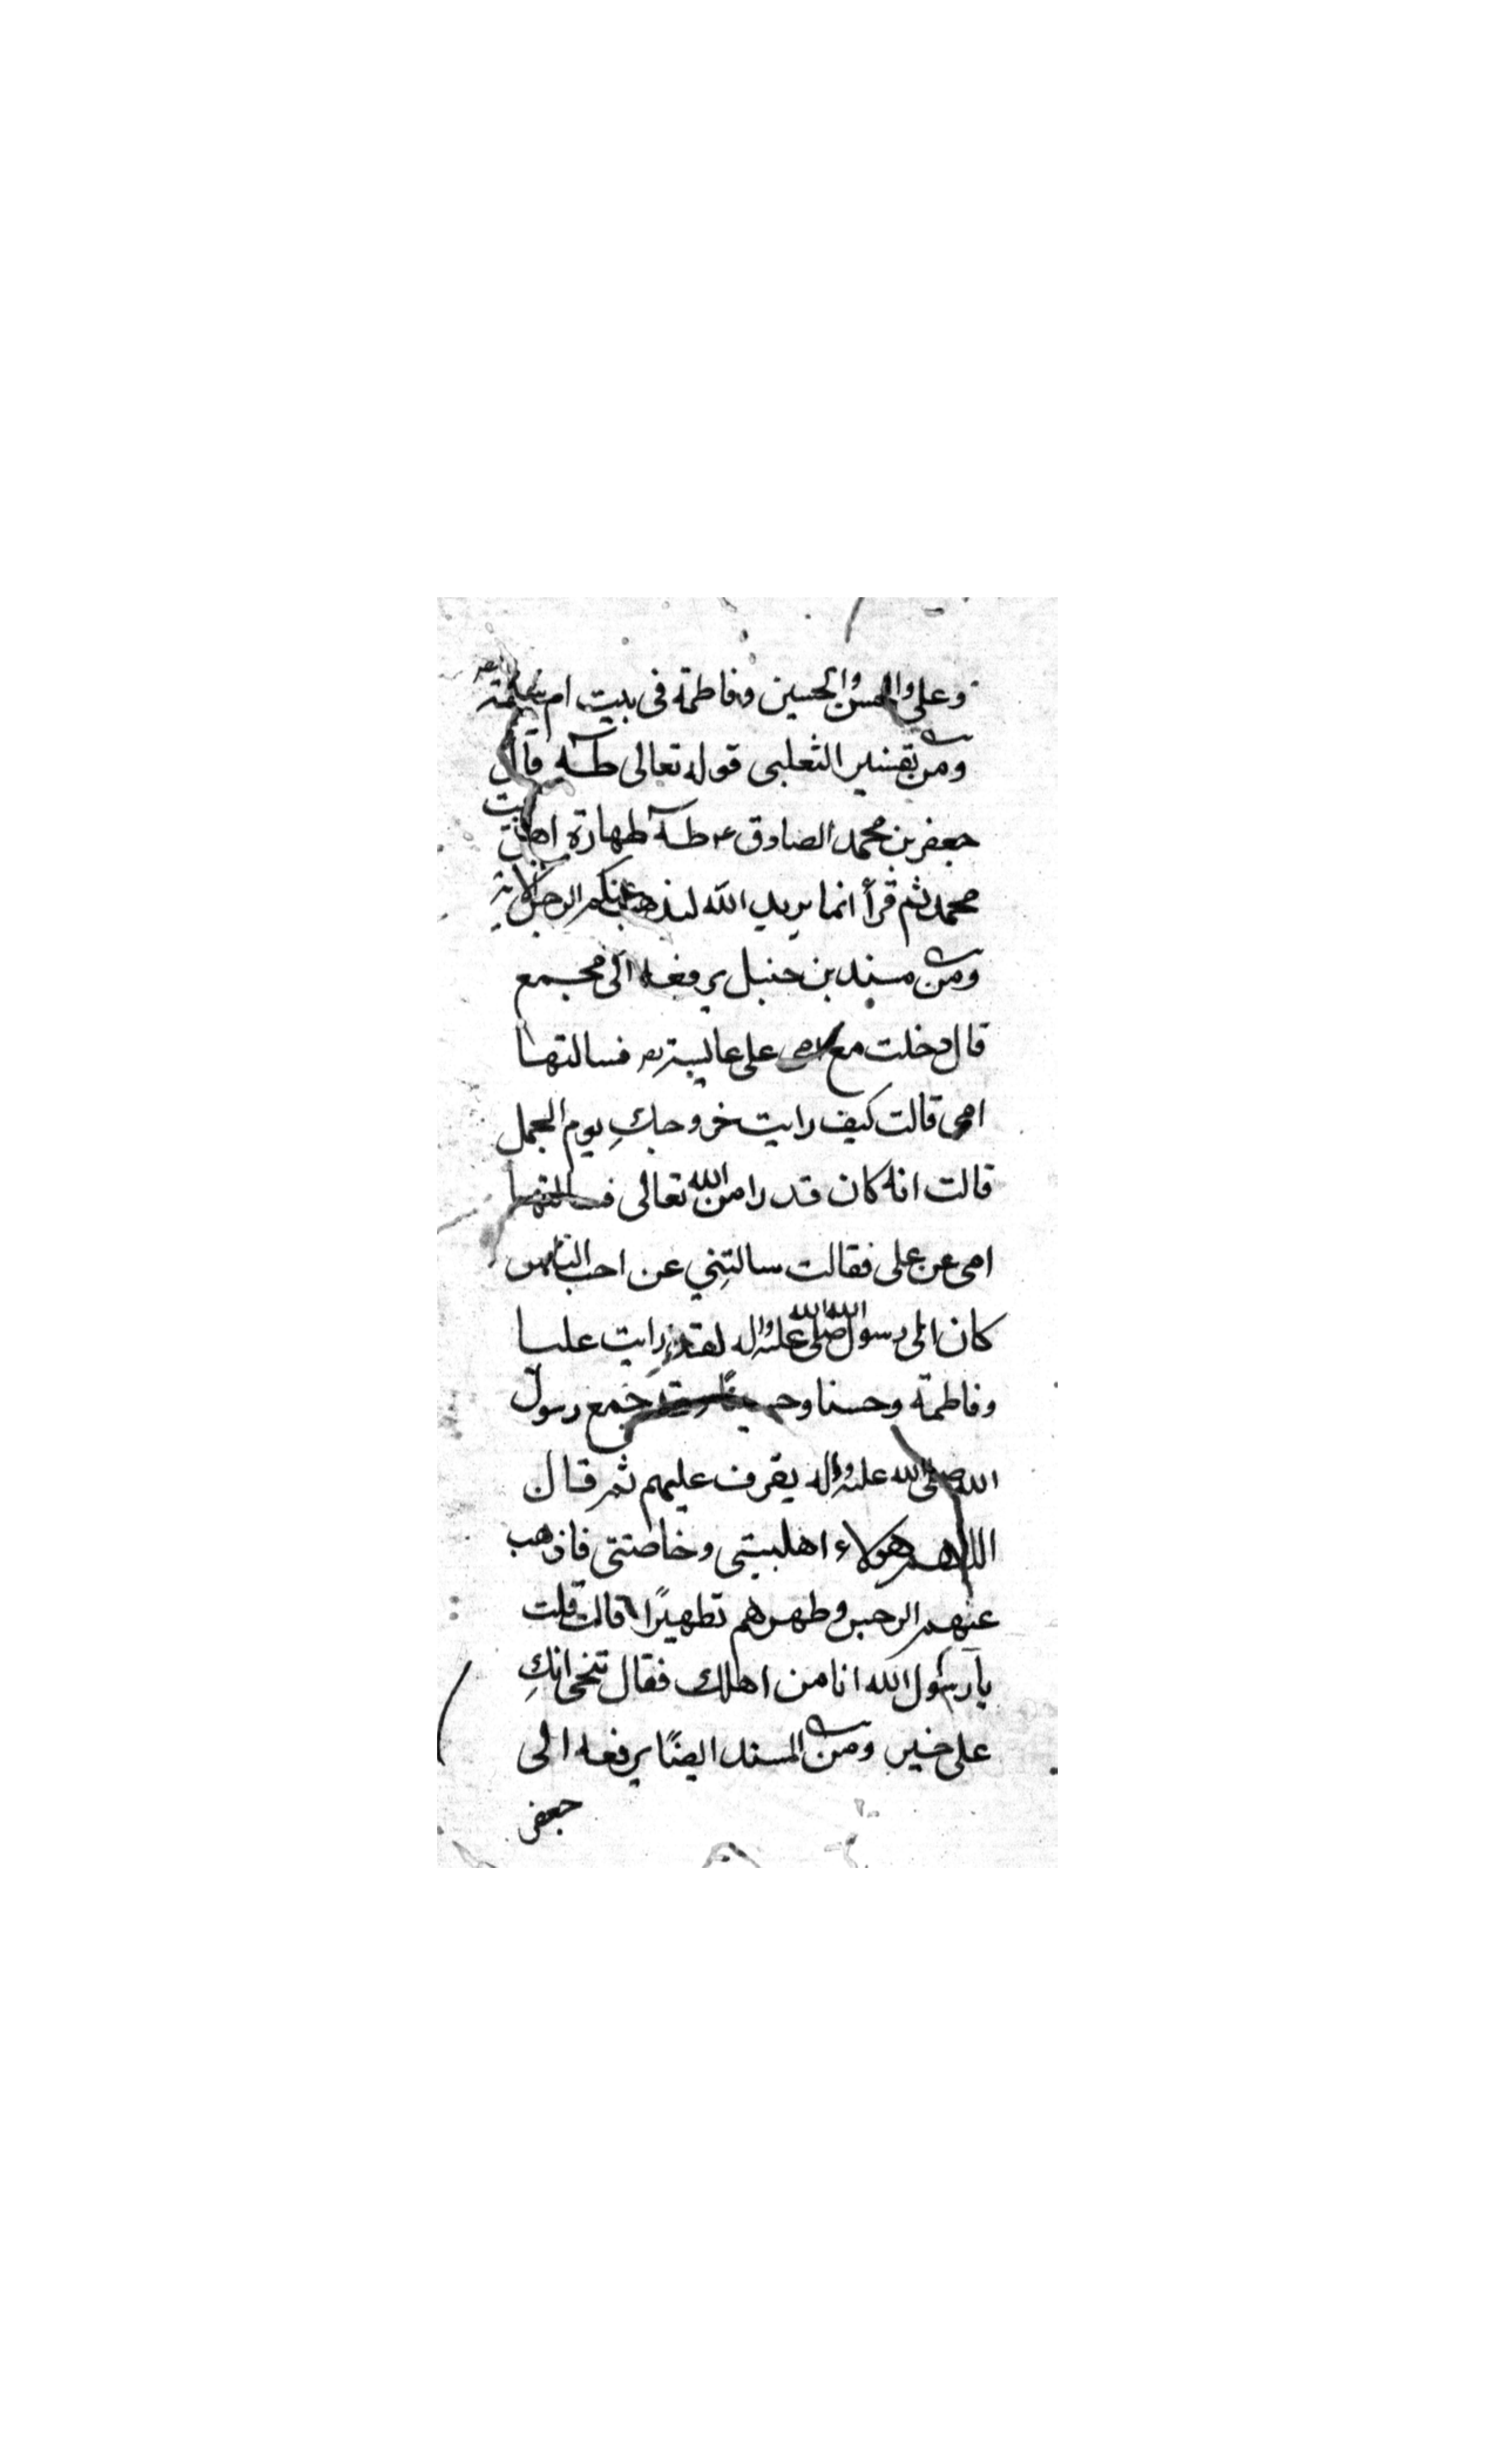 وعلي والحسن والحسين وفاطمة في بيت ام سلمة
ومن تفسير الثعلبي قوله تعالى طه قال
جعفر بن محمد الصادق ع طه طهارة اهل بيت
محمد ثم قرأ انما يريد الله ليذهب عنكم الرجس الاية
ومن مسند بن حنبل يرفعه الى مجمع
قال دخلت مع امي على عايشة فسالتها
امي قالت كيف رايت خروجكِ يوم الجمل
قالت انه كان قدرا من الله تعالى فسالتها
امي عن علي فقالت سالتِني عن احب الناس
كان الى رسول الله صلى الله عليه واله لقد رايت عليا
وفاطمة وحسنا وحسينًا جمع رسول
الله صلى الله عليه واله يغرف عليهم ثم قال
اللهم هولاء اهلبيتي وخاصتي فاذهب
عنهم الرجس وطهرهم تطهيرًا قالت قلت
يا رسول الله انا من اهلك فقال تنحى انكِ
على خير ومن المسند ايضًا يرفعه الى
جعفر